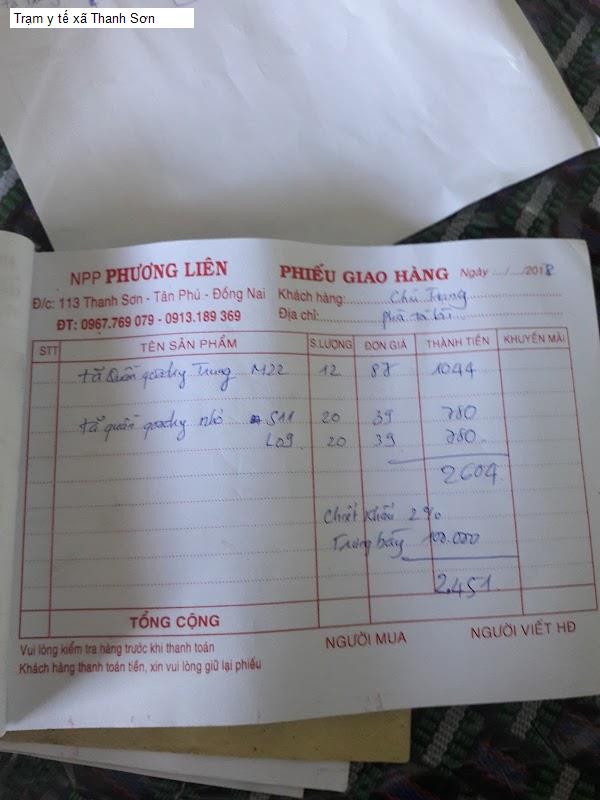 Trạm y tế xã Thanh Sơn
NPP PHƯƠNG LIÊN
Đ/c: 113 Thanh Sơn - Tân Phú - Đồng Nai
ĐT: 0967.769 079 - 0913.189 369
PHIẾU GIAO HÀNG Ngày .../.../2018
Khách hàng: Chú Trang
Địa chỉ:
STT TÊN SẢN PHẨM S.LƯỢNG ĐƠN GIÁ THÀNH TIỀN KHUYẾN MÃI
tã Quần goodry Trung M22 12 87 1044
tã quần goodry nhỏ S11 20 39 780
L09 20 39 780
2604
Chiết Khấu 2%
Trưng bày 100.000
2.451
TỔNG CỘNG
Vui lòng kiểm tra hàng trước khi thanh toán
Khách hàng thanh toán tiền, xin vui lòng giữ lại phiếu
NGƯỜI MUA
NGƯỜI VIẾT HĐ